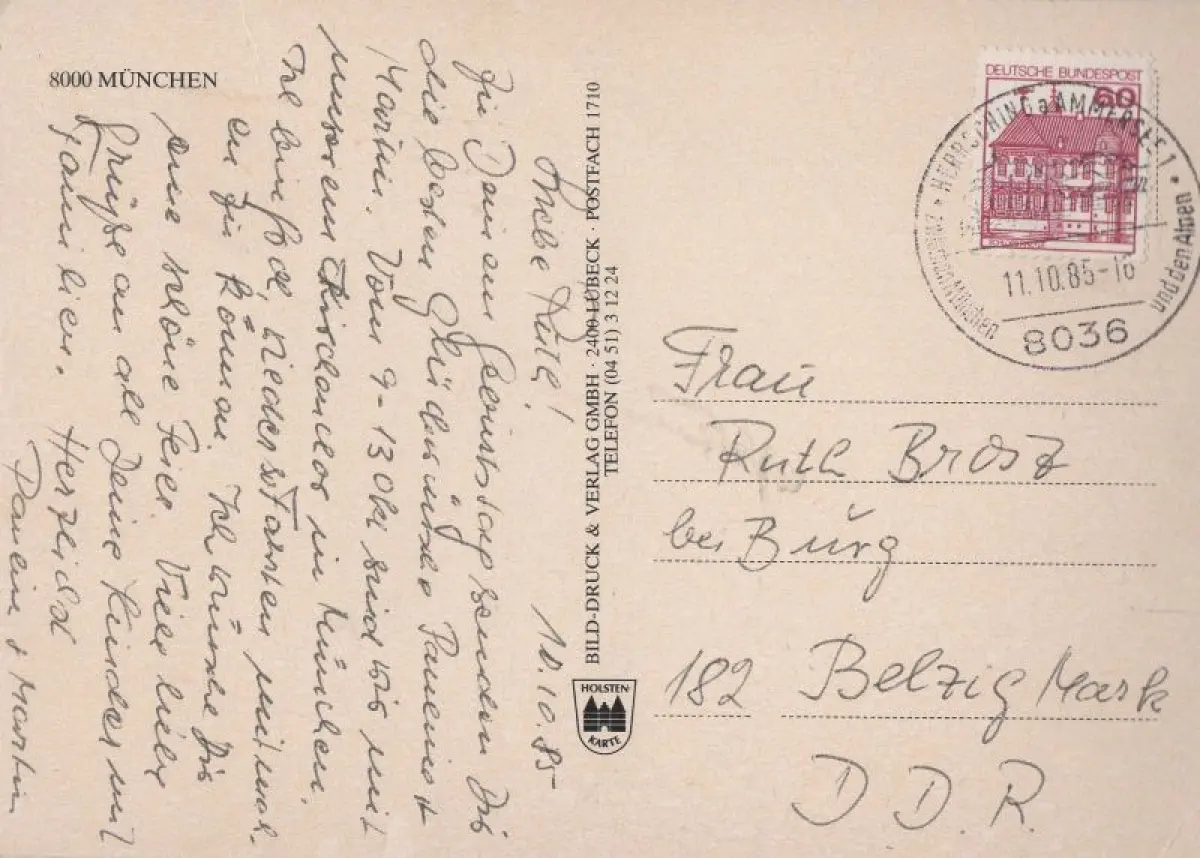 8000 MÜNCHEN
10.10.85
Liebe Ruth!
Zu Deinem Geburtstag senden Dir
die besten Glückwünsche Paulein +
Martin. Vom 9-13 Okt sind wir mit
unserem Kirchenchor in München.
wieder mitmach-
en zu können. Ich wünsche Dir
eine schöne Feier. Viele liebe
Grüße an all Deine Kinder mit
Familien. Herzlichst
Paulein + Martin
BILD-DRUCK & VERLAG GMBH · 2400 LÜBECK · POSTFACH 1710
TELEFON (04 51) 3 12 24
HOLSTEN-
KARTE
DEUTSCHE BUNDESPOST
60
HERRSCHING a AMMERSEE 1
zwischen München
und den Alpen
11.10.85-16
8036
Frau
Ruth Brösz
bei Burg
182 Belzig Mark
D D. R.